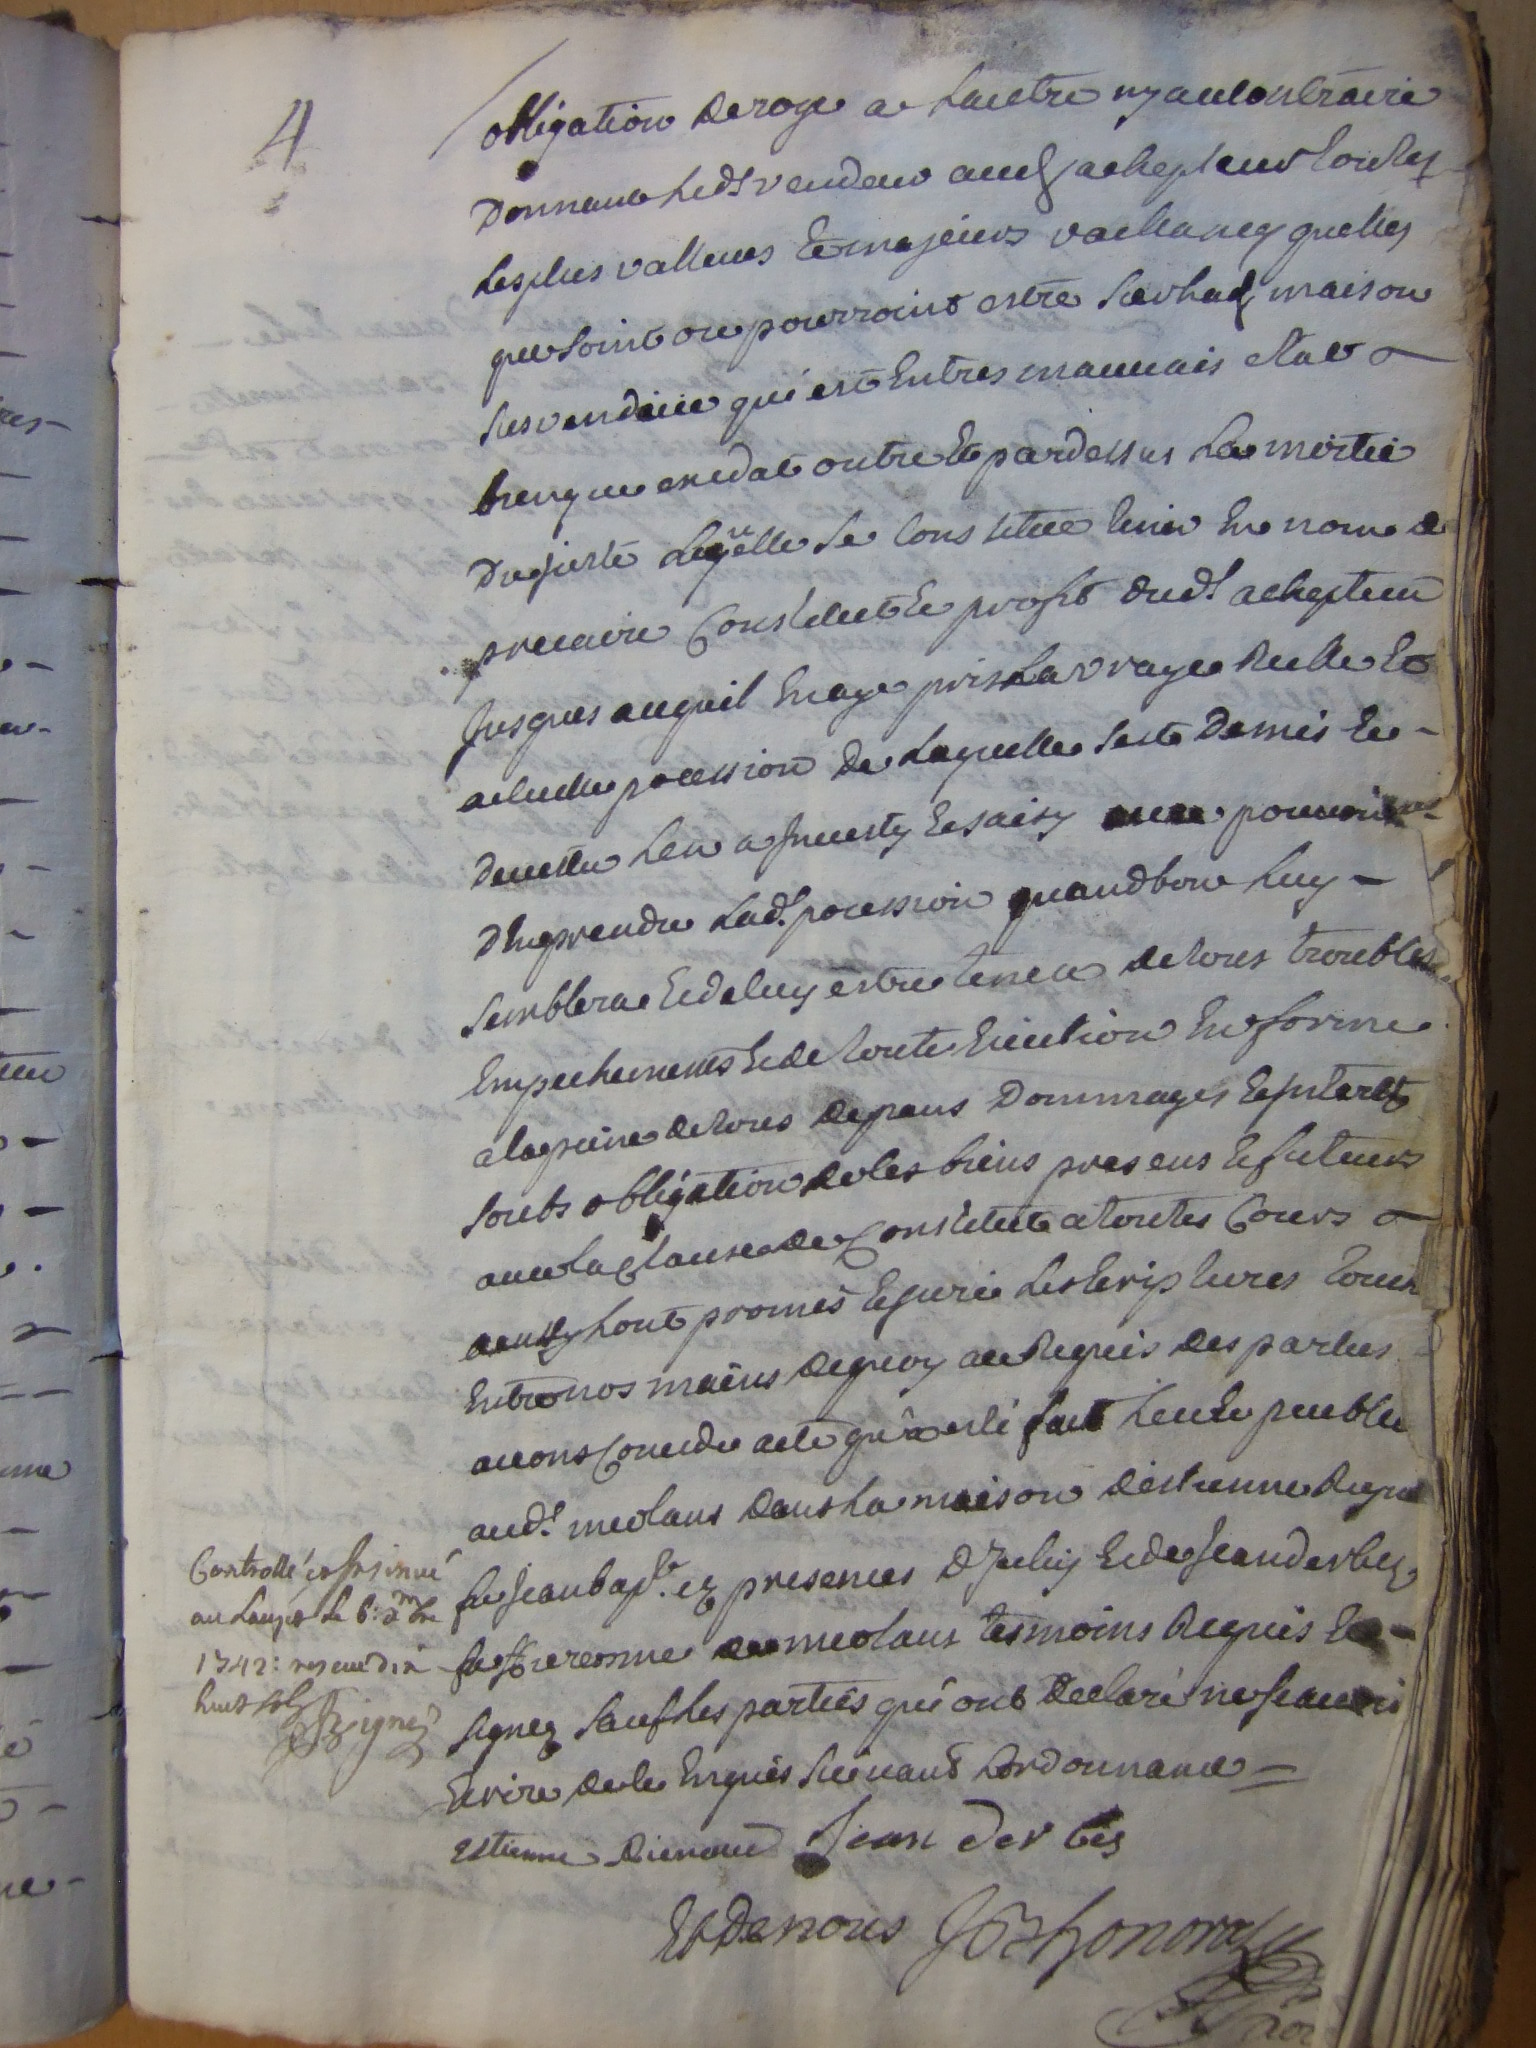 4
obligation deroge a Lautre ny au contraire
Donnant Led.t vendeur aud.t achepteur toutes
Les plus vallues Et majeurs vaillances quelles
que soint ou pourroint estre sur lad.t maison
sus vendue qui est En tres mauuais Etat
bien que exedat outre Et pardessus La moitié
Du juste Laquelle Se Constitue tenir En nom de
precaire Constitut Et profit dud.t achepteur
Jusques auquil En aye pris La vraye Réelle Et
actuelle pocession De Laquelle sest Demis Et
Deuestu Len a Jnuesty Et saisy pouuoir
D'En prendre Lad.t pocession quand bon Luy
semblera Et de luy estre tenu de tous troubles
Empechements Et de toute Euiction En forme
a la peine de tous depans Dommages Et Jnterets
soubs obligation de ses biens presens Et futeurs
auec la Clause de Constitut a toutes Cours
ainsy Lont promis Et juré Les Escriptures
Entre nos mains de quoy au Requis des parties
auons Concedé acte qu'a esté fait Leu Et publié
aud.t meolans dans La maison d'estienne
fu Jean bap.te ez presences D'Jceluy Et de Jean derbez
fu de meolans tesmoins Requis Et
signez sauf Les parties qui ont Declaré ne scauoir
Escrire de ce Enquis suiuant Lordonnance
Estienne Jean der bes
Et De nous Honorat
Controllé et Jnsinué
au Lauzet Le 6: x.bre
1742: reçeu dix
huit sols
Signé